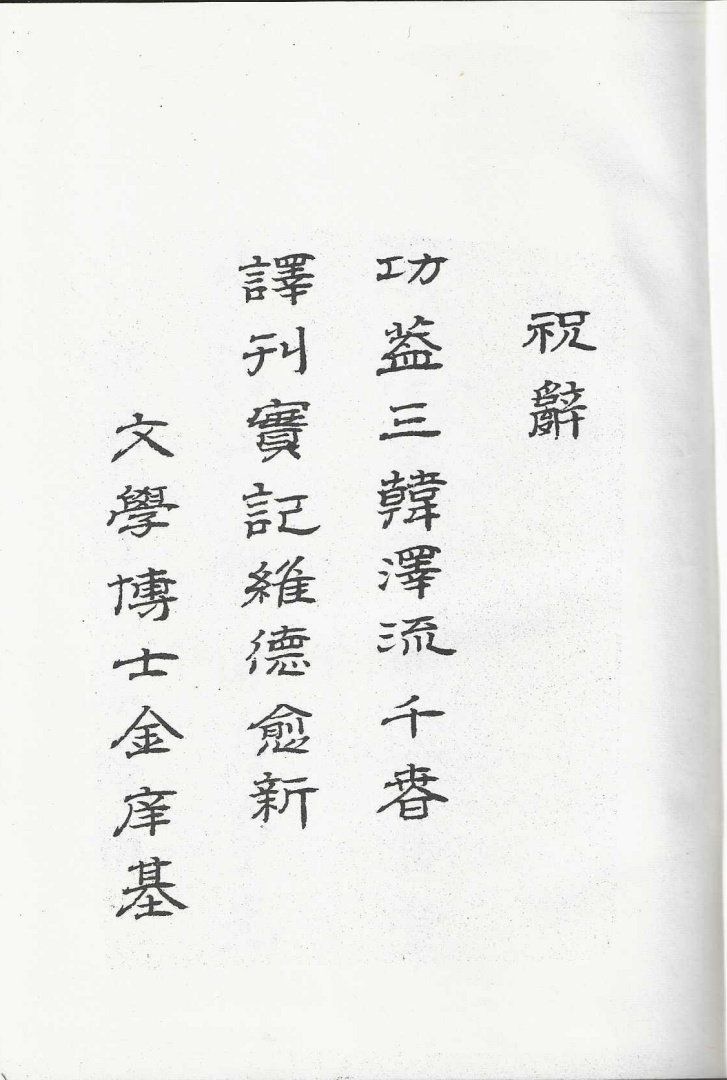 祝辭
功蓋三韓澤流千春
譯刊實記維德愈新
文學博士金庠基